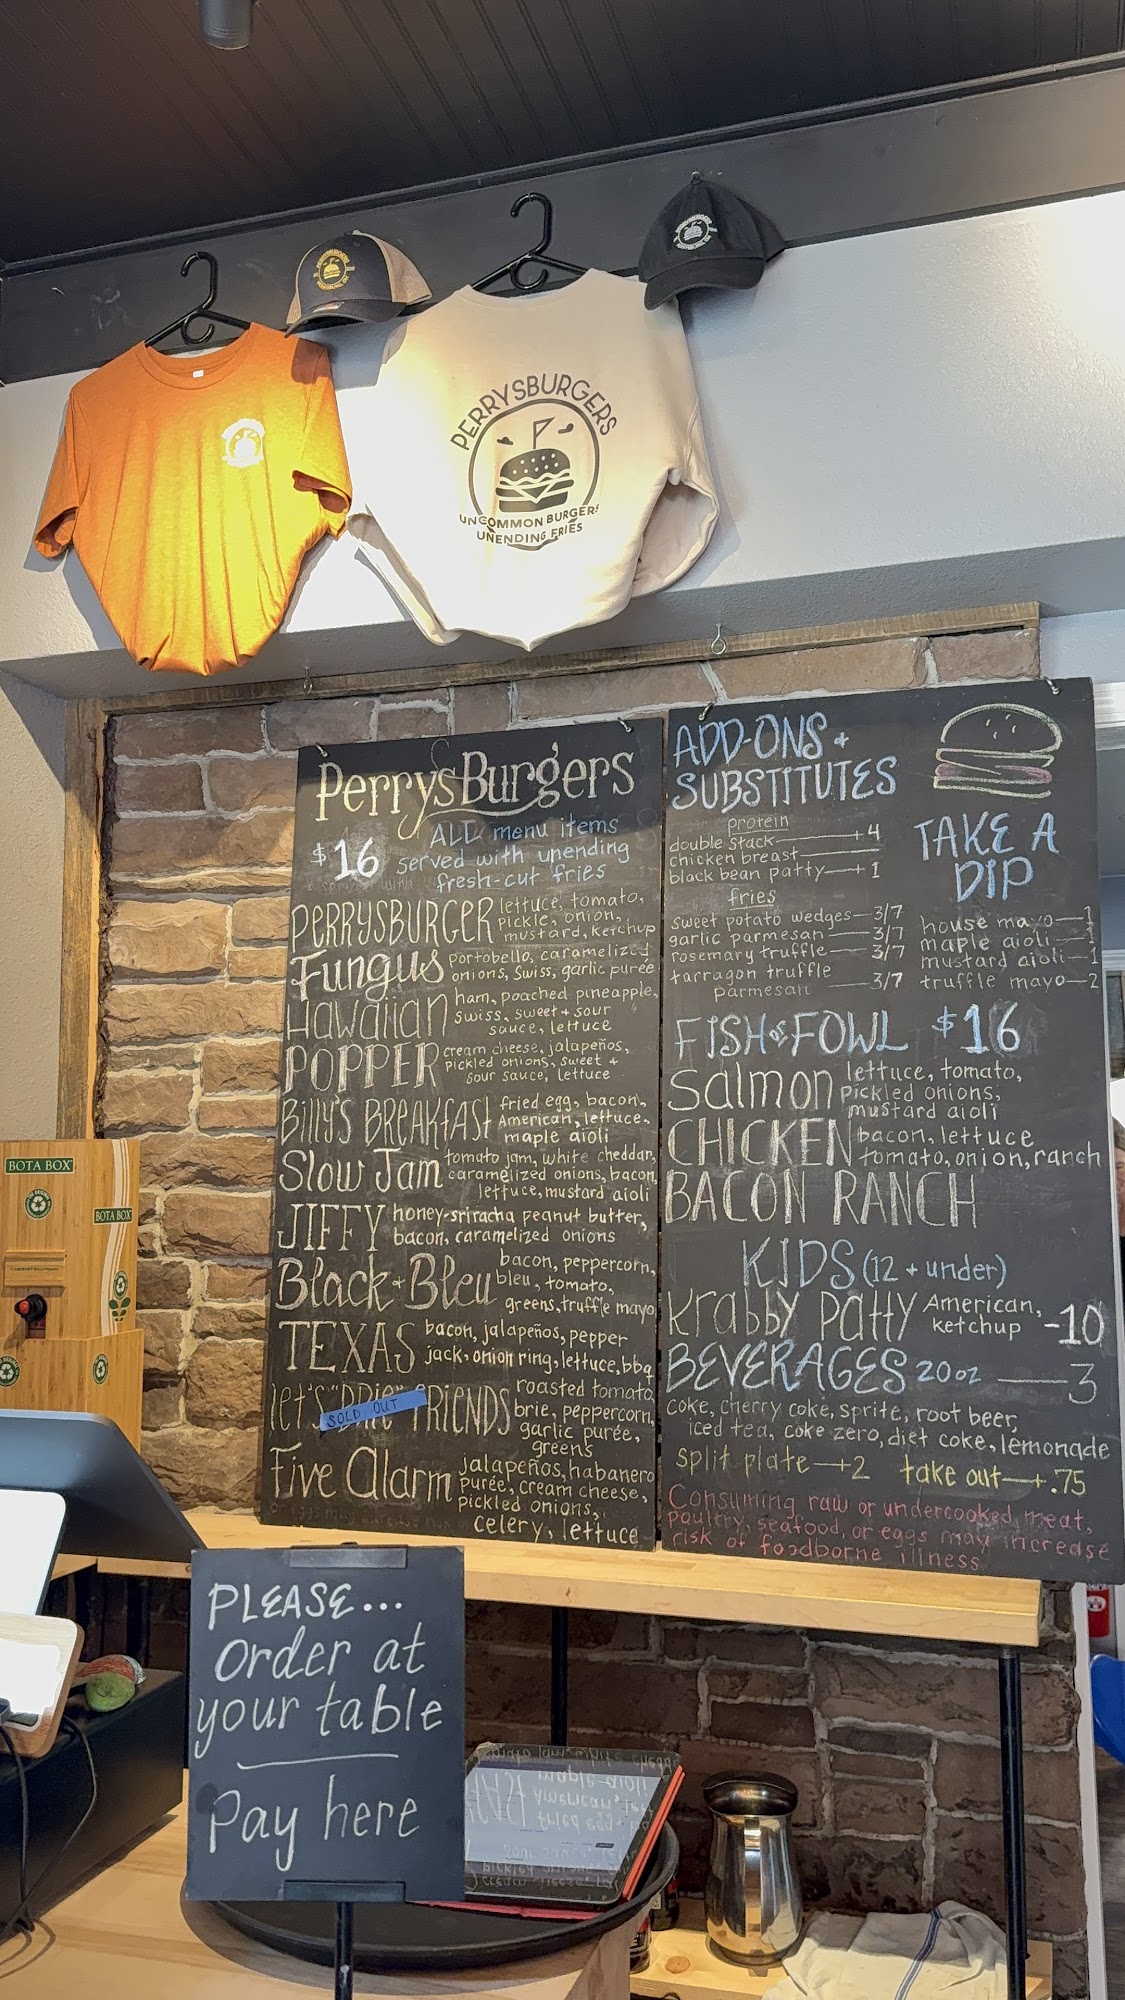 PERRYSBURGERS
UNCOMMON BURGERS
UNENDING FRIES
PerrysBurgers
$16 ALL menu items
served with unending
fresh-cut fries
PERRYSBURGER lettuce, tomato,
pickle, onion,
mustard, ketchup
Fungus portobello, caramelized
onions, Swiss, garlic purée
Hawaiian ham, poached pineapple,
Swiss, sweet + sour
sauce, lettuce
POPPER cream cheese, jalapeños,
pickled onions, sweet +
sour sauce, lettuce
BILLY'S BREAKFAST fried egg, bacon,
American, lettuce,
maple aioli
Slow Jam tomato jam, white cheddar,
caramelized onions, bacon,
lettuce, mustard aioli
JIFFY honey-sriracha peanut butter,
bacon, caramelized onions
Black + Bleu bacon, peppercorn,
bleu, tomato,
greens, truffle mayo
TEXAS bacon, jalapeños, pepper
jack, onion ring, lettuce, bbq
let's "Brie" FRIENDS roasted tomato,
SOLD OUT
brie, peppercorn,
garlic purée,
greens
Five Alarm jalapeños, habanero
purée, cream cheese,
pickled onions,
celery, lettuce
ADD-ONS +
SUBSTITUTES
protein
double stack +4
chicken breast
black bean patty + 1
fries
sweet potato wedges 3/7
garlic parmesan 3/7
rosemary truffle 3/7
tarragon truffle
parmesan 3/7
TAKE A
DIP
house mayo 1
maple aioli 1
mustard aioli 1
truffle mayo 2
FISH or FOWL $16
Salmon lettuce, tomato,
pickled onions,
mustard aioli
CHICKEN bacon, lettuce
tomato, onion, ranch
BACON RANCH
KIDS (12 + under)
Krabby Patty American,
ketchup -10
BEVERAGES 20oz 3
coke, cherry coke, sprite, root beer,
iced tea, coke zero, diet coke, lemonade
split plate +2 take out +.75
Consuming raw or undercooked meat,
poultry, seafood, or eggs may increase
risk of foodborne illness.
BOTA BOX
BOTA BOX
PLEASE...
Order at
your table
Pay here